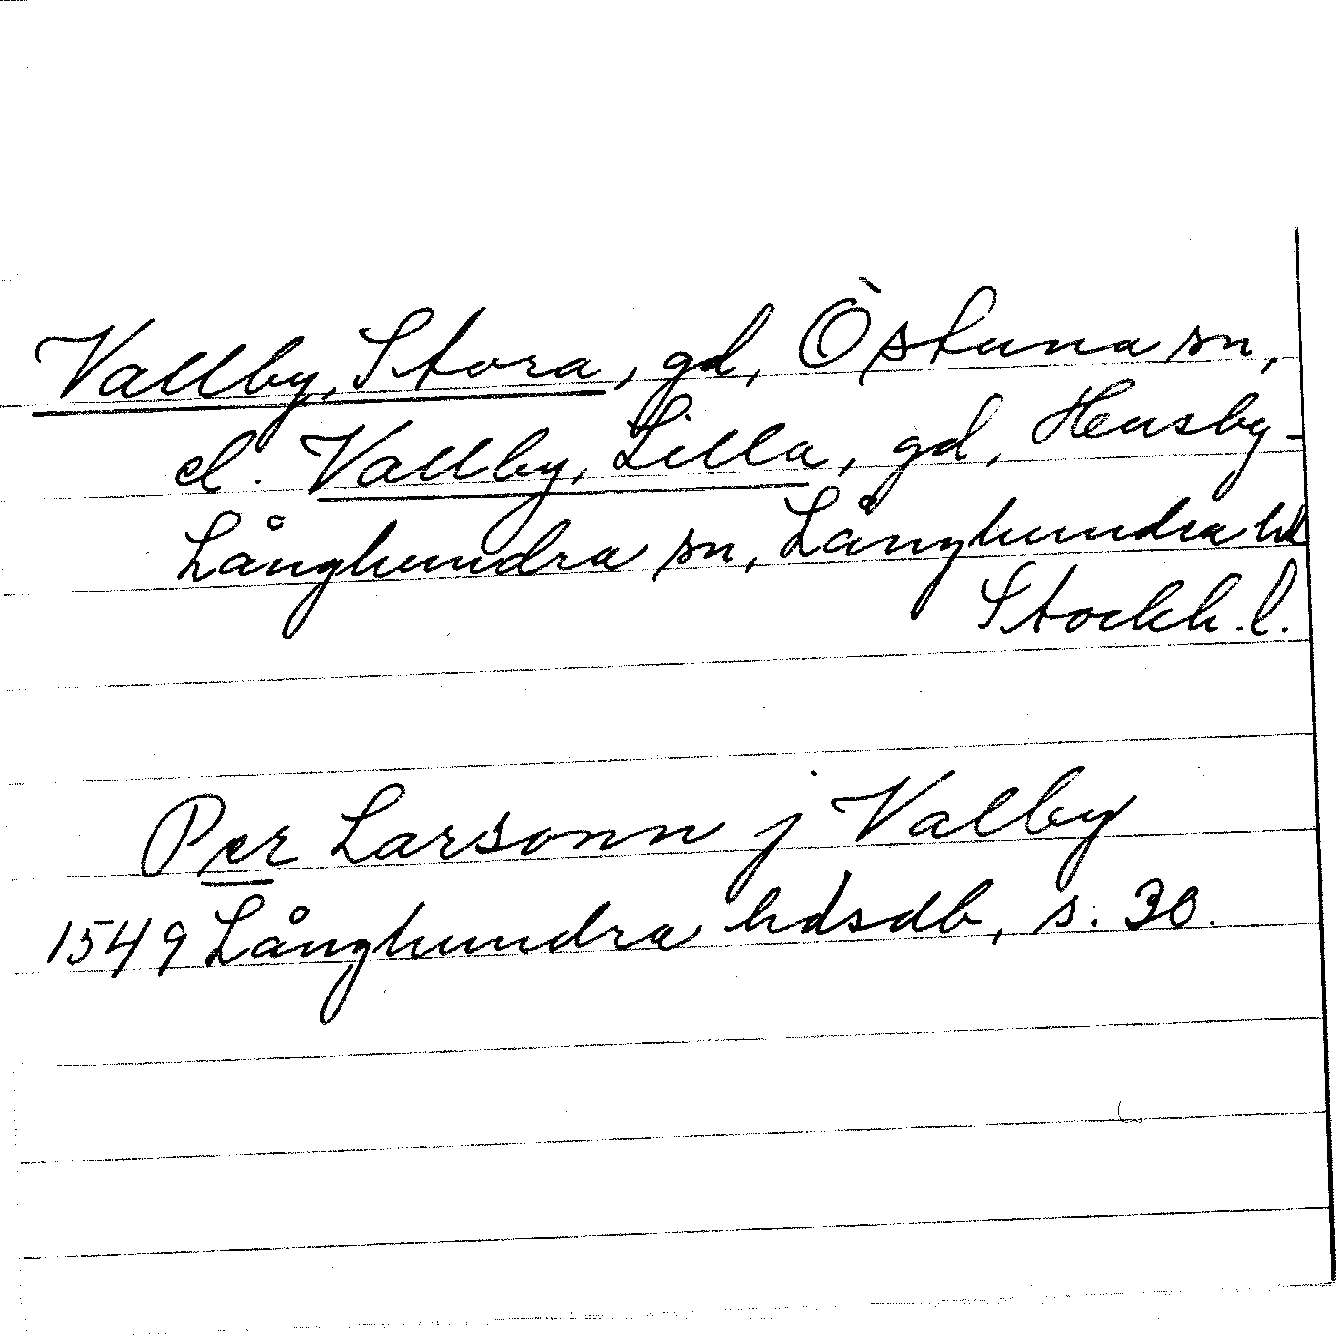 Vallby, Stora, gd, Östuna sn,
el. Vallby, Lilla, gd, Husby-
Långhundra sn, Långhundra hd
Stockh. l.
Per Larsonn j Valby
1549 Långhundra hdsdb, s. 30.